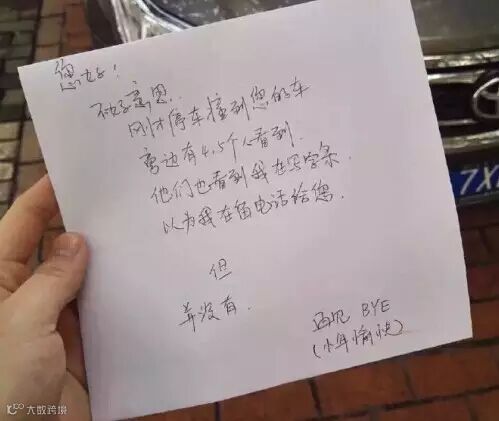 您好！
不好意思..
刚才停车撞到您的车
旁边有4.5个人看到.
他们也看到我在写字条
以为我在留电话给您.
但
并没有.
再见 BYE
(小年愉快)
7X
大数跨境